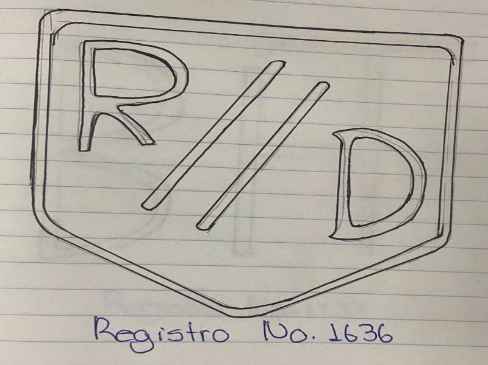 R//D
Registro No. 1636